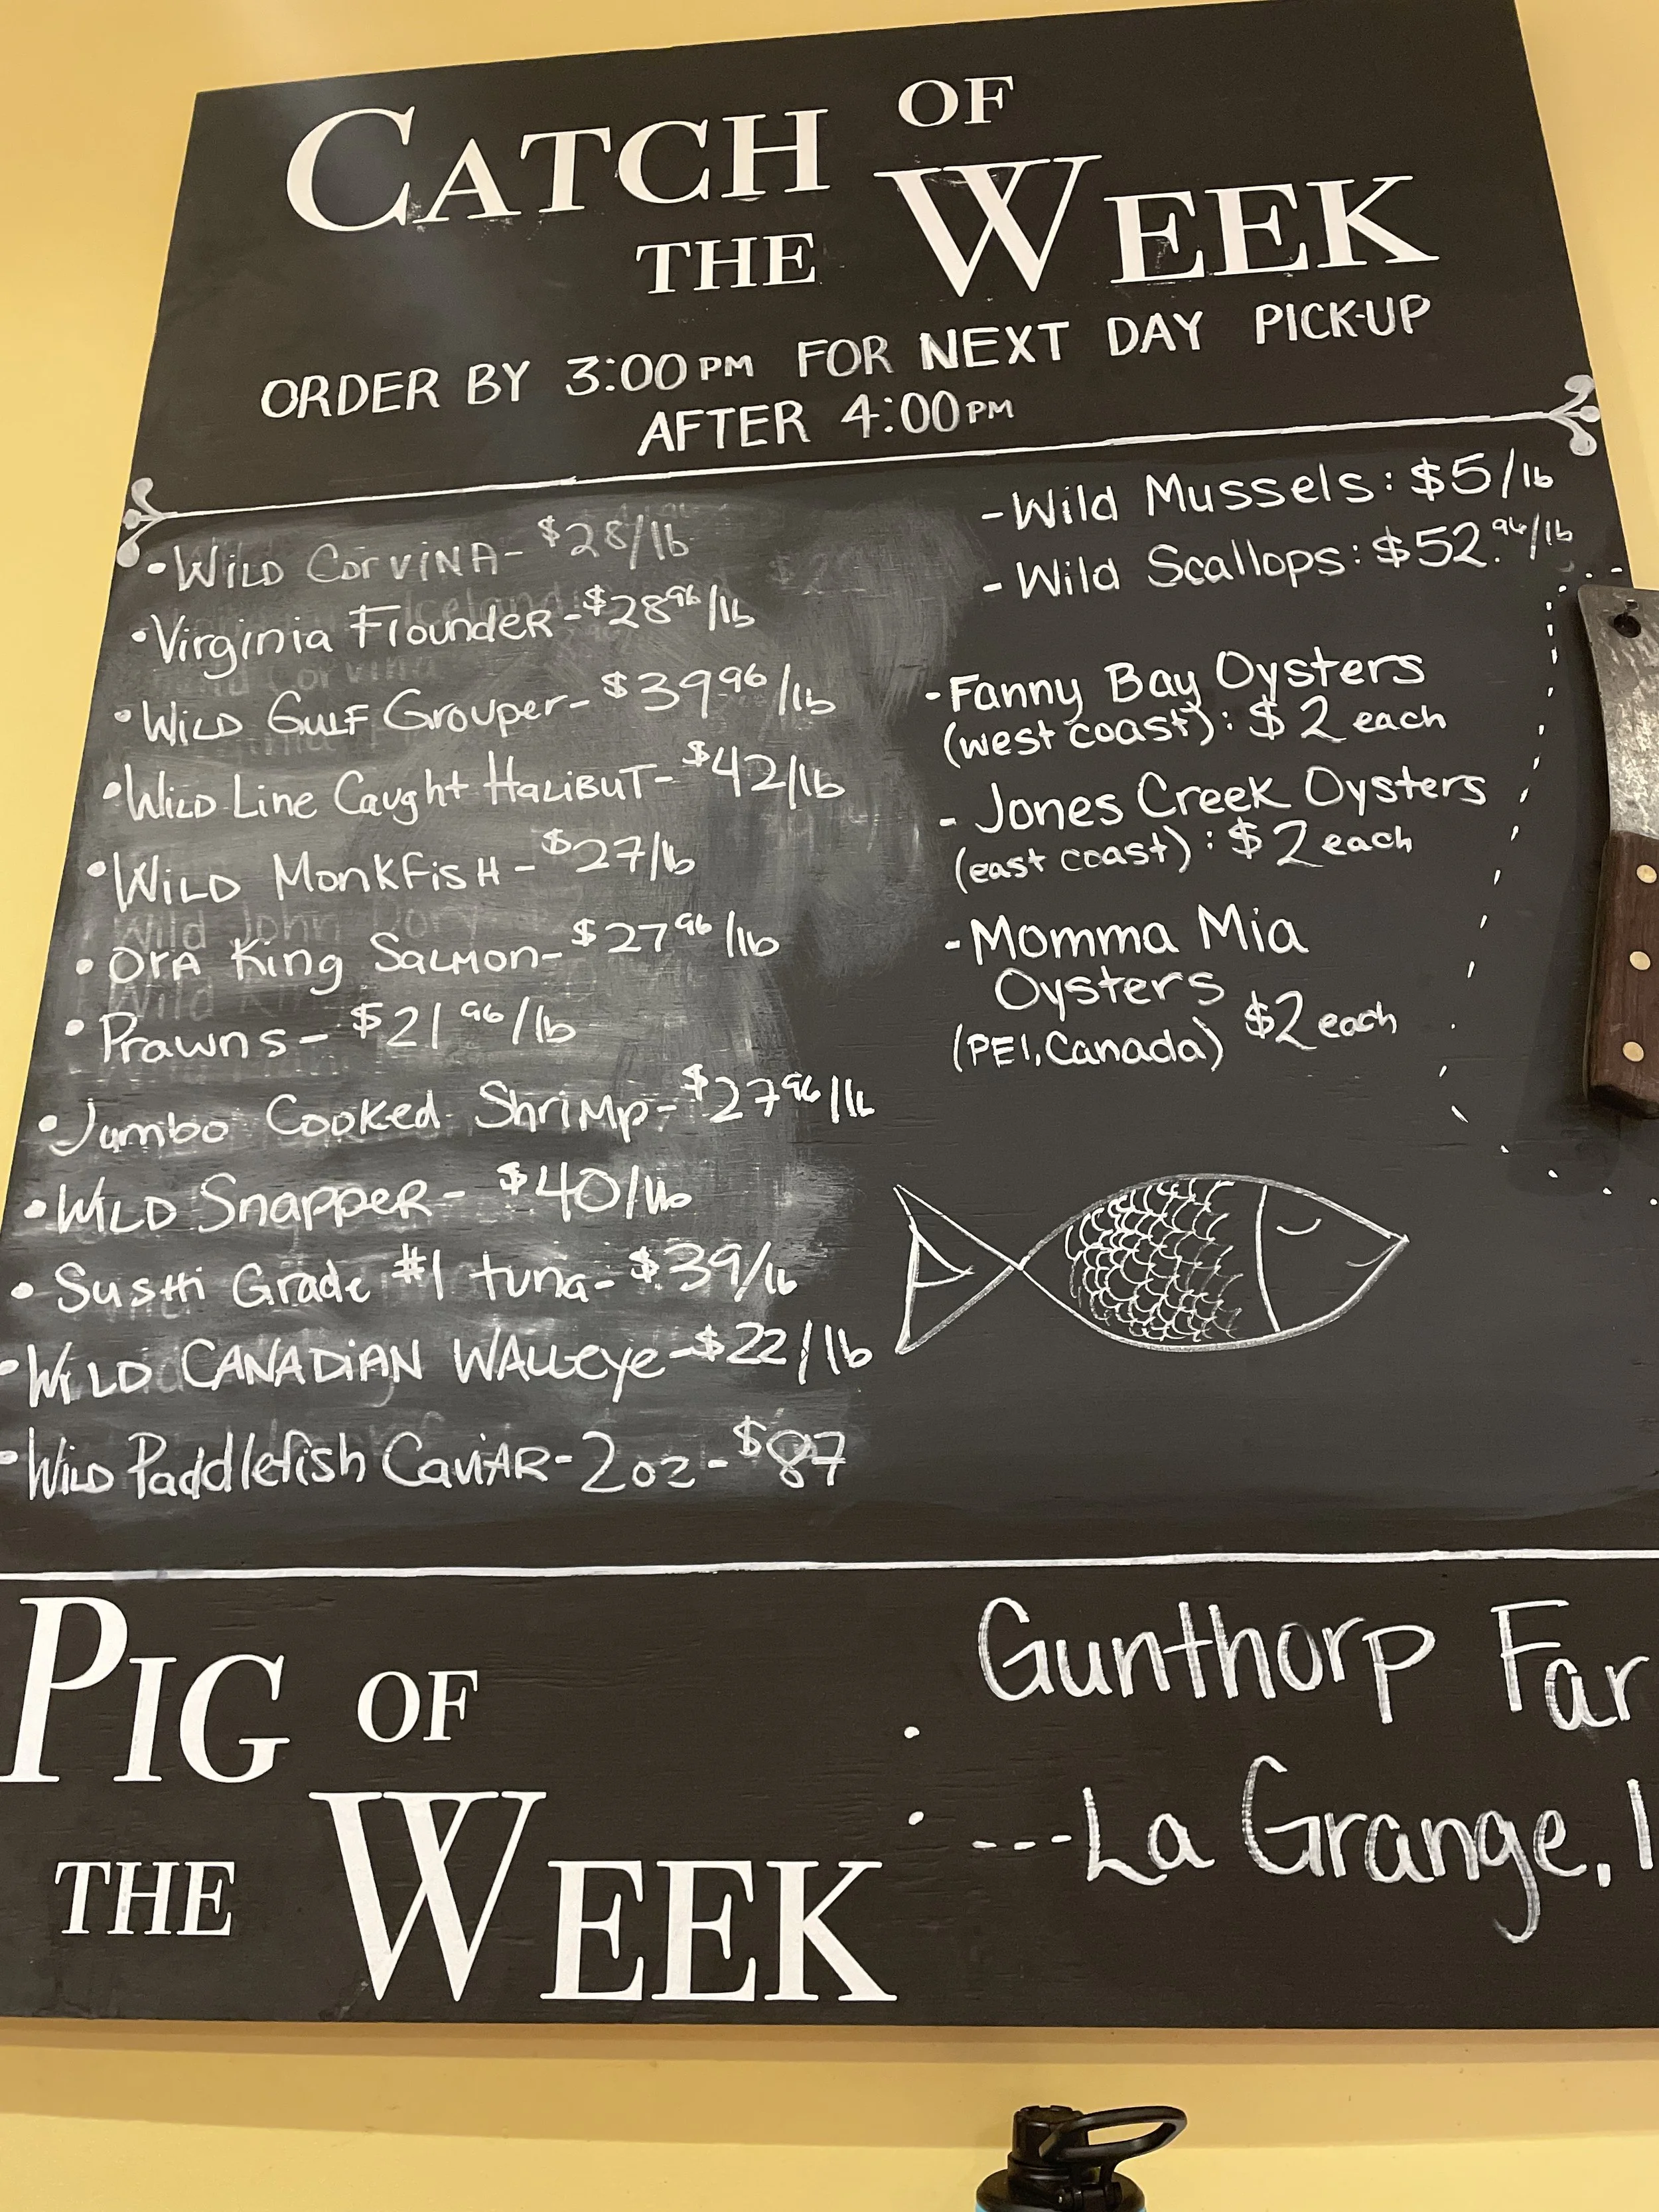 CATCH OF
THE WEEK
ORDER BY 3:00PM FOR NEXT DAY PICK-UP
AFTER 4:00PM
• WILD CORVINA - $28/lb
• Virginia Flounder - $28 96/lb
• WILD GULF Grouper - $39 96/lb
• WILD Line Caught HALIBUT - $42/lb
• WILD MONKFISH - $27/lb
• OrA King SALMON - $27 96/lb
• Prawns - $21 96/lb
• Jumbo Cooked Shrimp - $27 96/lb
• WILD Snapper - $40/lb
• Sushi Grade #1 tuna - $39/lb
• WILD CANADIAN WALLeye - $22/lb
• WILD Paddlefish CaviAR - 2oz - $87
- Wild Mussels: $5/lb
- Wild Scallops: $52.96/lb
- Fanny Bay Oysters
(west coast): $2 each
- Jones Creek Oysters
(east coast): $2 each
- Momma Mia
Oysters
(PEI, Canada) $2 each
PIG OF
THE WEEK
: Gunthorp Far
---La Grange, I